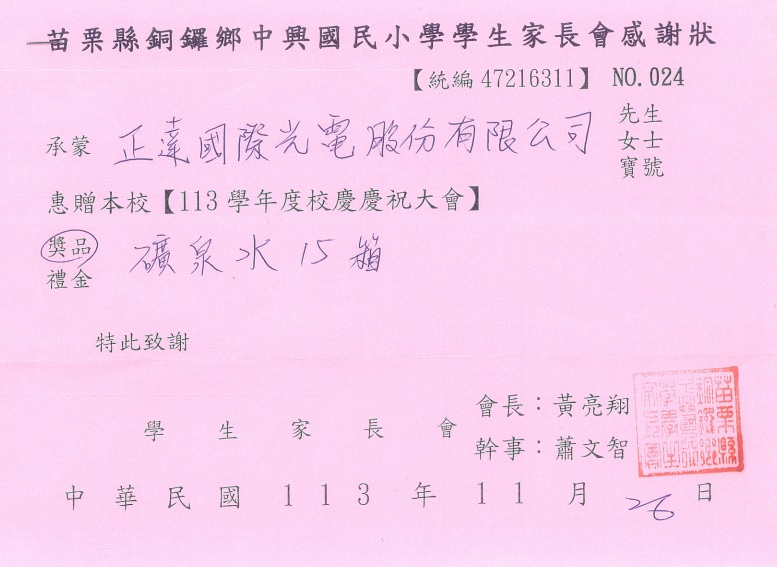 苗栗縣銅鑼鄉中興國民小學學生家長會感謝狀
【統編 47216311】 NO.024
承蒙 正達國際光電股份有限公司 先生
女士
寶號
惠贈本校【113 學年度校慶慶祝大會】
獎品 礦泉水 15 箱
禮金
特此致謝
學生家長會
會長：黃亮翔
幹事：蕭文智
中華民國 113 年 11 月 26 日